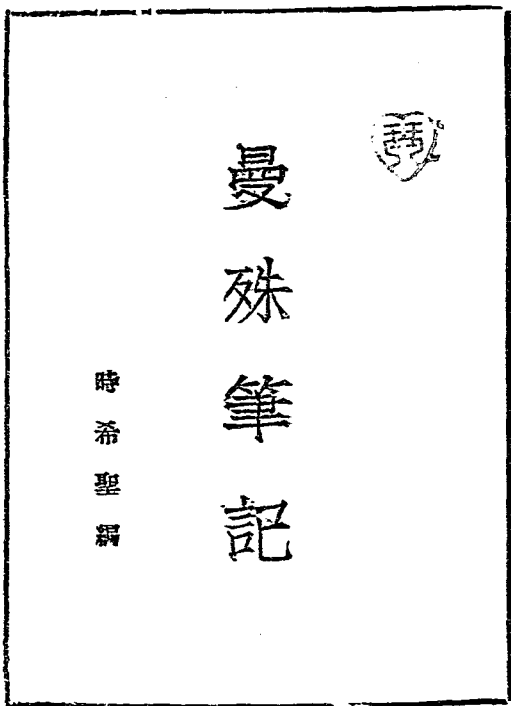 曼殊筆記
時希聖編